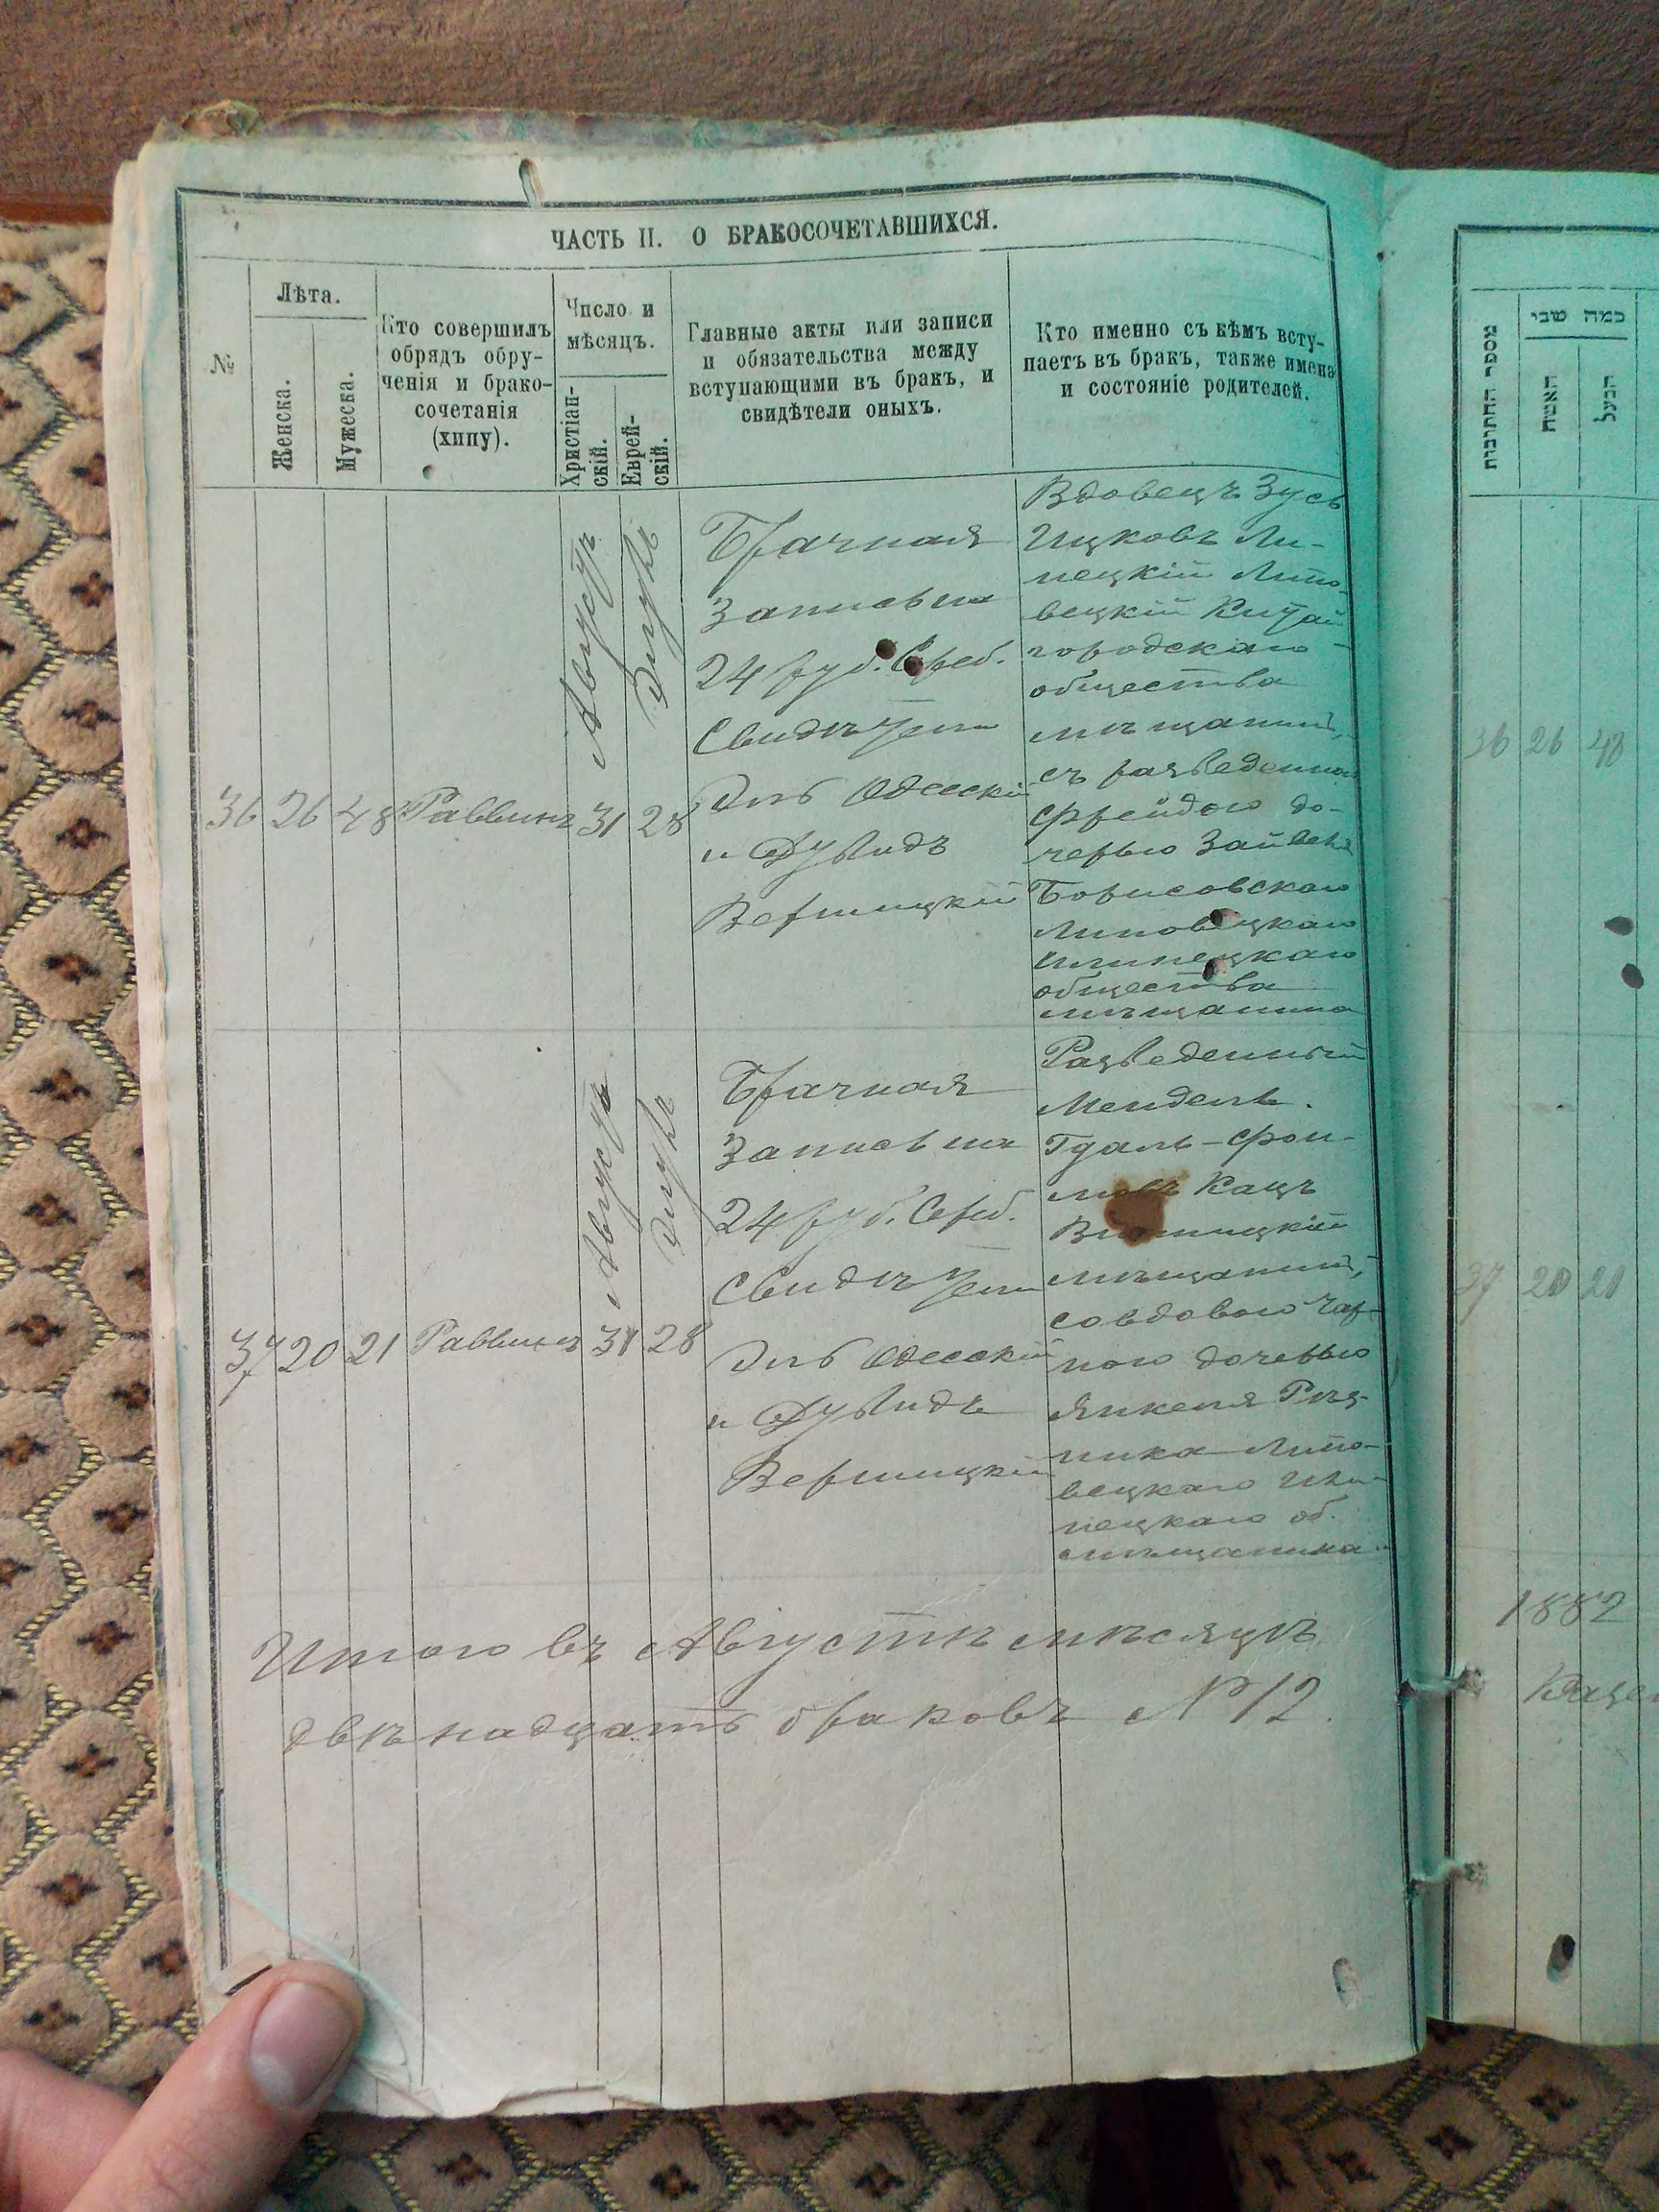 ЧАСТЬ II. О БРАКОСОЧЕТАВШИХСЯ.
№
Лѣта.
Женска.
Мужеска.
Кто совершилъ
обрядъ обру-
ченія и брако-
сочетанія
(хипу).
Число и
мѣсяцъ.
Христіан-
скій.
Еврей-
скій.
Главные акты или записи
и обязательства между
вступающими въ бракъ, и
свидѣтели оныхъ.
Кто именно съ кѣмъ всту-
паетъ въ бракъ, также имена
и состояніе родителей.
36
26
48
Раввинъ
Августъ
31
Элулъ
28
Брачная
Запись на
24 руб. Сереб.
Свидѣтели
Эль Одесскій
и Дувидъ
Верницкій
Вдовецъ Зусь
Ицковъ Ли-
пецкій Липо-
вецкій Китай
городскаго
общества
мѣщанинъ,
съ разведенною
Фрейдою до-
черью Зайвеля
Борисовскаго
Липовецкаго
Илинецкаго
общества
мѣщанина
37
20
21
Раввинъ
Августъ
31
Элулъ
28
Брачная
Запись на
24 руб. Сереб.
Свидѣтели
Эль Одесскій
и Дувидъ
Верницкій
Разведенный
Мендель
Гдаль-Фои-
мовъ Кацъ
мѣщанинъ,
со вдовою Чар-
ною дочерью
Янкеля Рѣз-
ника Липо-
вецкаго Или-
нецкаго об.
мѣщанина
Итого въ Августѣ мѣсяцѣ
двѣнадцать браковъ № 12.
מספר החתונות
כמה שני
האשה
הבעל
36 26 48
37 20 21
1882